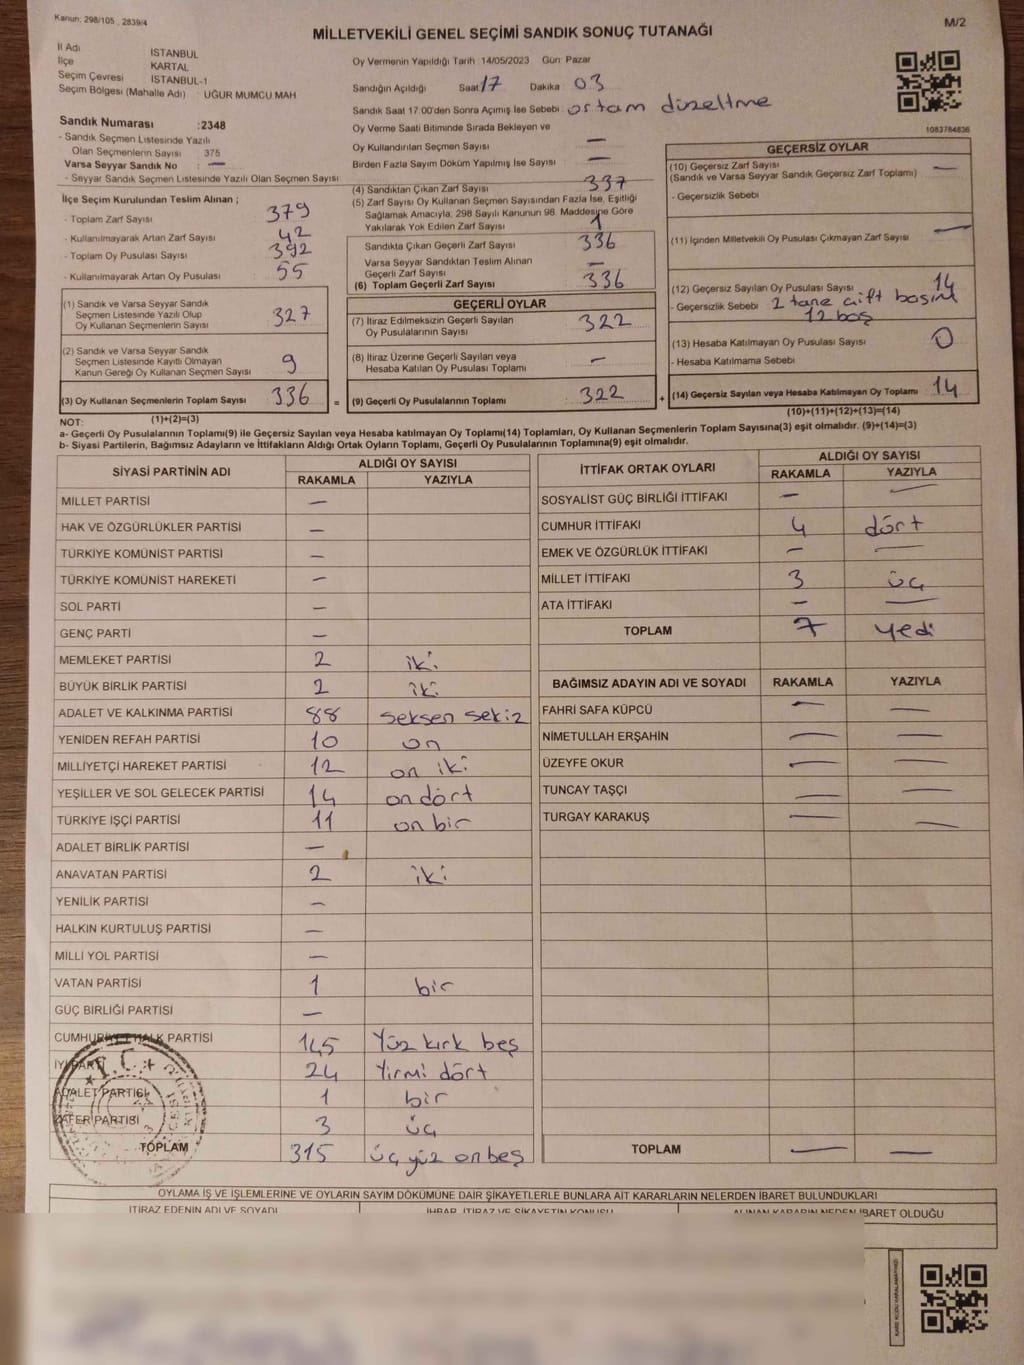 Kanun: 298/105 , 2839/4
M/2
MİLLETVEKİLİ GENEL SEÇİMİ SANDIK SONUÇ TUTANAĞI
İl Adı İSTANBUL
İlçe KARTAL
Seçim Çevresi İSTANBUL-1
Seçim Bölgesi (Mahalle Adı) : UĞUR MUMCU MAH
Oy Vermenin Yapıldığı Tarih 14/05/2023 Gün: Pazar
Sandığın Açıldığı Saat 17 Dakika 03
Sandık Saat 17:00'den Sonra Açımış İse Sebebi ortam düzeltme
Oy Verme Saati Bitiminde Sırada Bekleyen ve
Oy Kullandırılan Seçmen Sayısı —
Birden Fazla Sayım Döküm Yapılmış İse Sayısı —
1083784836
Sandık Numarası :2348
- Sandık Seçmen Listesinde Yazılı
Olan Seçmenlerin Sayısı 375
Varsa Seyyar Sandık No : —
- Seyyar Sandık Seçmen Listesinde Yazılı Olan Seçmen Sayısı
İlçe Seçim Kurulundan Teslim Alınan ;
- Toplam Zarf Sayısı 379
- Kullanılmayarak Artan Zarf Sayısı 42
- Toplam Oy Pusulası Sayısı 392
- Kullanılmayarak Artan Oy Pusulası 55
(1) Sandık ve Varsa Seyyar Sandık
Seçmen Listesinde Yazılı Olup
Oy Kullanan Seçmenlerin Sayısı 327
(2) Sandık ve Varsa Seyyar Sandık
Seçmen Listesinde Kayıtlı Olmayan
Kanun Gereği Oy Kullanan Seçmen Sayısı 9
(3) Oy Kullanan Seçmenlerin Toplam Sayısı 336 =
(4) Sandıktan Çıkan Zarf Sayısı 337
(5) Zarf Sayısı Oy Kullanan Seçmen Sayısından Fazla İse, Eşitliği
Sağlamak Amacıyla, 298 Sayılı Kanunun 98. Maddesine Göre
Yakılarak Yok Edilen Zarf Sayısı 1
Sandıkta Çıkan Geçerli Zarf Sayısı 336
Varsa Seyyar Sandıktan Teslim Alınan
Geçerli Zarf Sayısı —
(6) Toplam Geçerli Zarf Sayısı 336
GEÇERLİ OYLAR
(7) İtiraz Edilmeksizin Geçerli Sayılan
Oy Pusulalarının Sayısı 322
(8) İtiraz Üzerine Geçerli Sayılan veya
Hesaba Katılan Oy Pusulası Toplamı —
(9) Geçerli Oy Pusulalarının Toplamı 322 +
GEÇERSİZ OYLAR
(10) Geçersiz Zarf Sayısı —
(Sandık ve Varsa Seyyar Sandık Geçersiz Zarf Toplamı)
- Geçersizlik Sebebi
(11) İçinden Milletvekili Oy Pusulası Çıkmayan Zarf Sayısı —
(12) Geçersiz Sayılan Oy Pusulası Sayısı 14
- Geçersizlik Sebebi 2 tane çift basım
12 boş
(13) Hesaba Katılmayan Oy Pusulası Sayısı 0
- Hesaba Katılmama Sebebi
(14) Geçersiz Sayılan veya Hesaba Katılmayan Oy Toplamı 14
NOT: (1)+(2)=(3) (10)+(11)+(12)+(13)=(14)
a- Geçerli Oy Pusulalarının Toplamı(9) ile Geçersiz Sayılan veya Hesaba katılmayan Oy Toplamı(14) Toplamları, Oy Kullanan Seçmenlerin Toplam Sayısına(3) eşit olmalıdır. (9)+(14)=(3)
b- Siyasi Partilerin, Bağımsız Adayların ve İttifakların Aldığı Ortak Oyların Toplamı, Geçerli Oy Pusulalarının Toplamına(9) eşit olmalıdır.
SİYASİ PARTİNİN ADI ALDIĞI OY SAYISI
RAKAMLA YAZIYLA
MİLLET PARTİSİ —
HAK VE ÖZGÜRLÜKLER PARTİSİ —
TÜRKİYE KOMÜNİST PARTİSİ —
TÜRKİYE KOMÜNİST HAREKETİ —
SOL PARTİ —
GENÇ PARTİ —
MEMLEKET PARTİSİ 2 iki
BÜYÜK BİRLİK PARTİSİ 2 iki
ADALET VE KALKINMA PARTİSİ 88 seksen sekiz
YENİDEN REFAH PARTİSİ 10 on
MİLLİYETÇİ HAREKET PARTİSİ 12 on iki
YEŞİLLER VE SOL GELECEK PARTİSİ 14 on dört
TÜRKİYE İŞÇİ PARTİSİ 11 on bir
ADALET BİRLİK PARTİSİ —
ANAVATAN PARTİSİ 2 iki
YENİLİK PARTİSİ —
HALKIN KURTULUŞ PARTİSİ —
MİLLİ YOL PARTİSİ —
VATAN PARTİSİ 1 bir
GÜÇ BİRLİĞİ PARTİSİ —
CUMHURİYET HALK PARTİSİ 145 Yüz kırk beş
İYİ PARTİ 24 Yirmi dört
ADALET PARTİSİ 1 bir
ZAFER PARTİSİ 3 üç
TOPLAM 315 üç yüz on beş
T.C.
İTTİFAK ORTAK OYLARI ALDIĞI OY SAYISI
RAKAMLA YAZIYLA
SOSYALİST GÜÇ BİRLİĞİ İTTİFAKI — —
CUMHUR İTTİFAKI 4 dört
EMEK VE ÖZGÜRLÜK İTTİFAKI — —
MİLLET İTTİFAKI 3 üç
ATA İTTİFAKI — —
TOPLAM 7 yedi
BAĞIMSIZ ADAYIN ADI VE SOYADI RAKAMLA YAZIYLA
FAHRİ SAFA KÜPCÜ — —
NİMETULLAH ERŞAHİN — —
ÜZEYFE OKUR — —
TUNCAY TAŞÇI — —
TURGAY KARAKUŞ — —
TOPLAM — —
OYLAMA İŞ VE İŞLEMLERİNE VE OYLARIN SAYIM DÖKÜMÜNE DAİR ŞİKAYETLERLE BUNLARA AİT KARARLARIN NELERDEN İBARET BULUNDUKLARI
İTİRAZ EDENİN ADI VE SOYADI İHBAR, İTİRAZ VE ŞİKAYETİN KONUSU ALINAN KARARIN NEDEN İBARET OLDUĞU